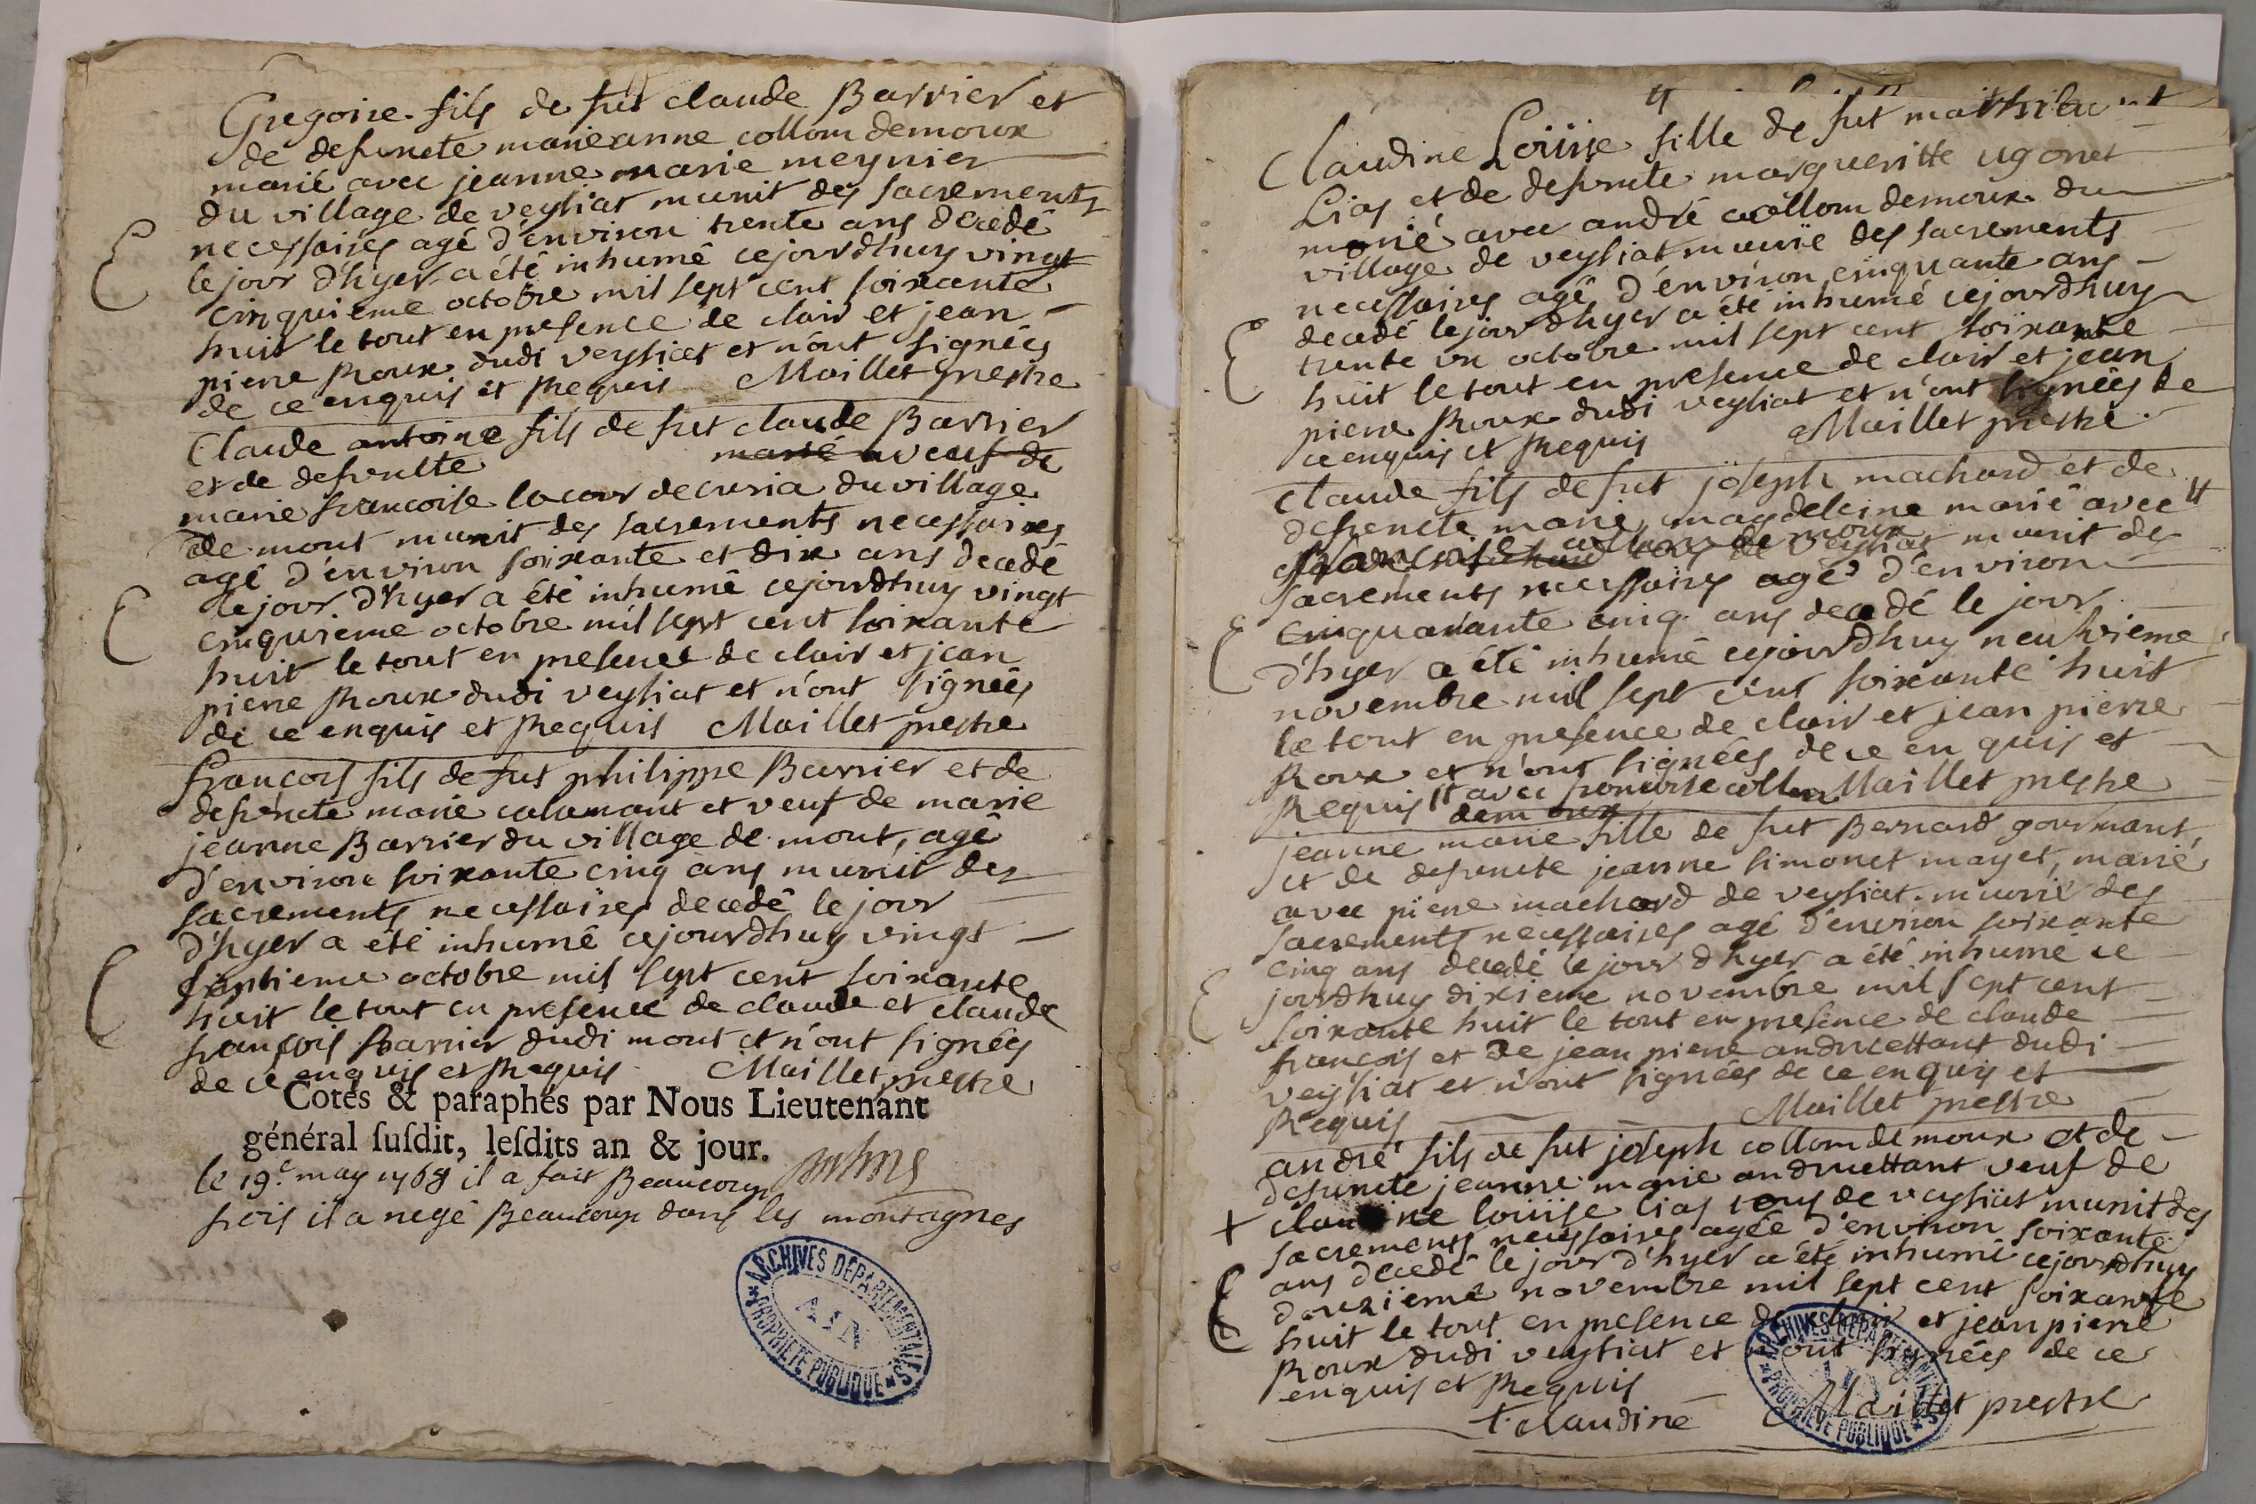 Gregoire fils de fut claude Barrier et
de defuncte marie anne collom demoux
marié avec jeanne marie meynier
du village de veysiat munit des sacrements
necessaires agé d'environ trente ans decedé
le jour d'hyer a été inhumé cejourdhuy vingt
cinquieme octobre mil sept cent soixante
huit le tout en presence de clair et jean
pierre Roux dudi veysiat et n'ont signées
de ce enquis et Requis Maillet prestre
Claude antoine fils de fut claude Barrier
et de defuncte marié aveuf de
marie francoise lacour decuria du village
de mont munit des sacrements necessaires
agé d'environ soixante et dix ans decedé
le jour d'hyer a été inhumé cejourdhuy vingt
cinquieme octobre mil sept cent soixante
huit le tout en presence de clair et jean
pierre Roux dudi veysiat et n'ont signées
de ce enquis et Requis Maillet prestre
francois fils de fut philippe Barrier et de
defuncte marie calamant et veuf de marie
jeanne Barrier du village de mont, agé
d'environ soixante cinq ans munit des
sacrements necessaires decedé le jour
d'hyer a été inhumé cejourdhuy vingt
septieme octobre mil sept cent soixante
huit le tout en presence de claude et claude
françois Barrier dudi mont et n'ont signées
de ce enquis et Requis Maillet prestre
Cotés & paraphés par Nous Lieutenant
général susdit, lesdits an & jour.
le 19e may 1768 il a fait Beaucoup
frois il a negé Beaucoup dans les montagnes
ARCHIVES DEPARTEMENTALES
AIN
PROPRIETE PUBLIQUE
Claudine Loüise fille de fut mathieu
Lias et de defuncte margueritte ugonet
marié avec andré collom demoux du
village de veysiat munie des sacrements
necessaires agé d'environ cinquante ans
decedé le jour d'hyer a été inhumé cejourdhuy
trente un octobre mil sept cent soixante
huit le tout en presence de clair et jean
pierre Roux dudi veysiat et n'ont signées de
ce enquis et Requis Maillet prestre
Claude fils de fut joseph machard et de
defuncte marie magdeleine marié avec
de veysiat munit des
sacrements necessaires agé d'environ
cinquante cinq ans decedé le jour
d'hyer a été inhumé cejourdhuy neufvieme
novembre mil sept cent soixante huit
le tout en presence de clair et jean pierre
Roux et n'ont signées de ce en quis et
Requis avec francoise collom Maillet prestre
demoux
jeanne marie fille de fut Bernard gourmant
et de defuncte jeanne simonet mayet, marié
avec pierre machard de veysiat munie des
sacrements necessaires agé d'environ soixante
cinq ans decedé le jour d'hyer a été inhumé ce
jourdhuy dixieme novembre mil sept cent
soixante huit le tout en presence de claude
francois et de jean pierre andruettant dudi
veysiat et n'ont signées de ce enquis et
Requis Maillet prestre
andré fils de fut joseph collom demoux et de
defuncte jeanne marie andruettant veuf de
+ claudine loüise lias tous de veysiat munit des
sacrements necessaires agée d'environ soixante
ans decedé le jour d'hyer a été inhumé cejourdhuy
douzieme novembre mil sept cent soixante
huit le tout en presence de clair et jean pierre
Roux dudi veysiat et n'ont signées de ce
enquis et Requis
+ claudine Maillet prestre
ARCHIVES DEPARTEMENTALES
PROPRIETE PUBLIQUE